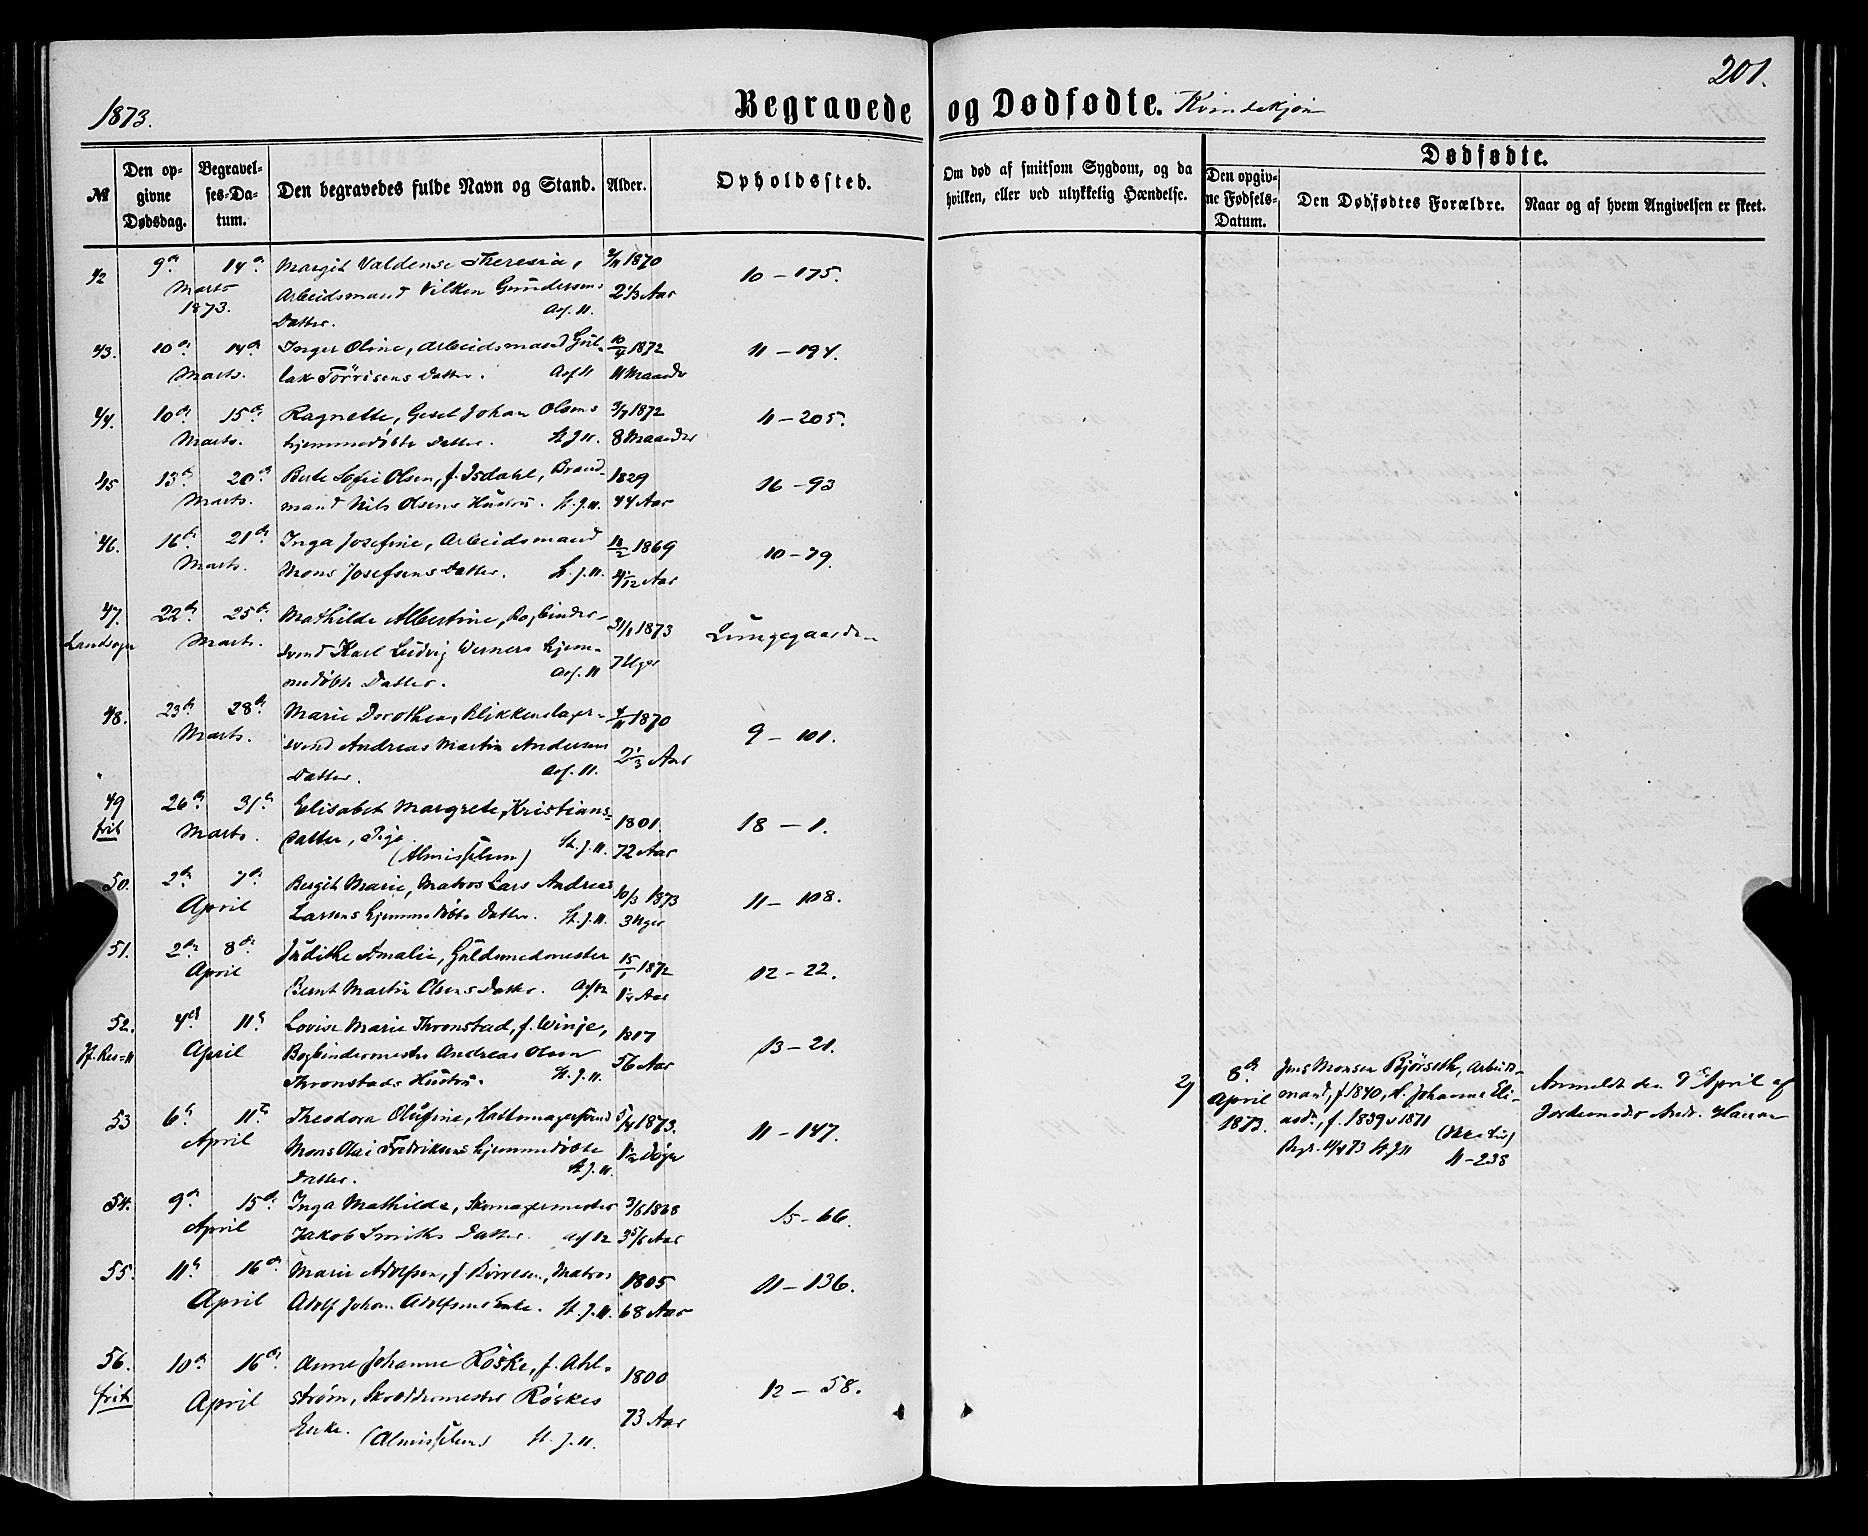 1873.
Begravede og Dødfødte. Kvindekjøn
201.
№
Den opgivne Dødsdag.
Begravelses-Datum.
Den begravedes fulde Navn og Stand.
Alder.
Opholdssted.
Om død af smitsom Sygdom, og da hvilken, eller ved ulykkelig Hændelse.
Dødfødte.
Den opgivne Fødsels-Datum.
Den Dødfødtes Forældre.
Naar og af hvem Angivelsen er skeet.
42 9de 14de Margit Valdense Theresia, 1870 10 – 175.
Marts Arbeidsmand Vilken Gundersens 2 1/3 Aar
1873. Datter.
43. 10de 14de Inger Oline, Arbeidsmand Gul- 10/4 1872 11 – 194.
Marts. lak Tørrisens Datter. 11 Maaneder
44. 10de 15de Ragnette, Gesel Johan Olsens 3/7 1872 11 – 205.
Marts. hjemmedøbte Datter. St. J. 11. 8 Maaneder
45 13de 20de Berte Sofie Olsen, f. Isdahl, Brand- 1829 16 – 93
Marts. mand Nils Olsens Hustru. St. J. 11. 44 Aar
46. 16de 21de Inga Josefine, Arbeidsmand 1869 10 – 79.
Marts. Mons Josefsens Datter. St. J. 11. 4 1/12 Aar
47. 22de 25de Mathilde Albertine, Bogbinder- 31/1 1873 Lungegaarde
Landsogn Marts. svend Karl Ludvig Werners hjem- 7 Uger
medøbte Datter.
48. 23de 28de Marie Dorothea, Blikkenslager- 4/11 1870 9 – 101.
Marts. svend Andreas Martin Andersens 2 1/3 Aar
Datter.
49 26de 31te Elisabet Margrete, Kristians- 1801. 18 – 1.
frit Marts. datter, Pige St. J. 11. 72 Aar
50. 2de 7de Bergit Marie, Matros Lars Andreas 10/3 1873 11 – 108.
April Larsens hjemmedøbte Datter. St. J. 11. 3 Uger
51. 2de 8de Judithe Amalie, Guldsmedmester 15/1 1872 12 – 22.
April Bernt Martin Olsens Datter. 1 1/4 Aar
52. 4de 11te Lovise Marie Thronstad, f. Winje, 1817 13 – 21.
April Bogbindermester Andreas Olsen 56 Aar
Thronstads Hustru. St. J. 11.
53 6te 11te Theodora Olufine, Hattemagersvend 5/4 1873. 11 – 147.
April Mons Olai Fredriksens hjemmedøbte 1 1/2 Døgn
Datter. St. J. 11.
54. 9de 15de Inga Mathilde, Skomagermester 3/6 1868 15 – 66.
April Jakob Smiths Datter. 3 5/6 Aar
55. 11te 16de Marie Adolfsen, f. , Matros 1805 11 – 136.
April Adolf Johan Adolfsens Enke. St. J. 11. 68 Aar
56. 10de 16de Anne Johanne Röske, f. Ahl- 1800 12 – 58.
frit April strøm, Skræddermester Röskes 73 Aar
Enke. St. J. 11.
2) 8de April 1873.
Jens Monsen Bjørseth, Arbeids-
mand, f. 1840, & Johanne Eli-
asdr., f. 1839 v 1871
Begr. 11/4 73 St. J. 11 11 – 238
Anmeldt den 9de April af
Jordemoder Andr. Hansen